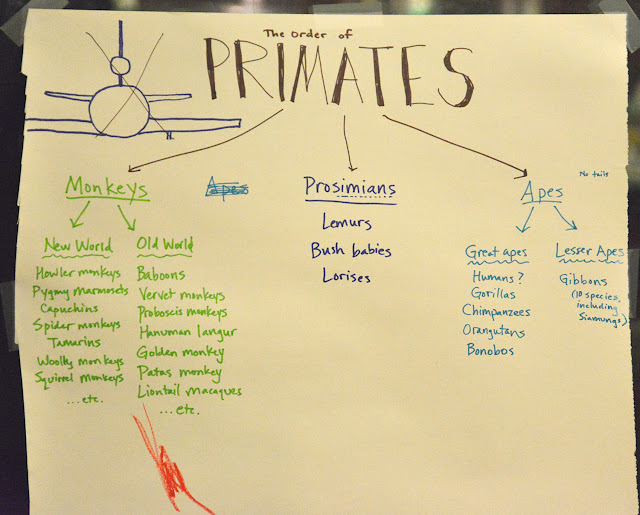 The Order of
PRIMATES
Monkeys
New World
Howler monkeys
Pygmy marmosets
Capuchins
Spider monkeys
Tamarins
Woolly monkeys
Squirrel monkeys
...etc.
Old World
Baboons
Vervet monkeys
Proboscis monkeys
Hanuman langur
Golden monkey
Patas monkey
Liontail macaques
...etc.
Apes
Prosimians
Lemurs
Bush babies
Lorises
No tails
Apes
Great apes
Humans?
Gorillas
Chimpanzees
Orangutans
Bonobos
Lesser Apes
Gibbons
(10 species,
including
Siamungs)